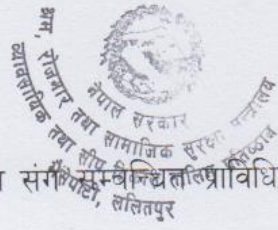 नेपाल सरकार
श्रम, रोजगार तथा सामाजिक सुरक्षा मन्त्रालय
व्यावसायिक तथा सीप तालिम प्रतिष्ठान
भैंसेपाटी, ललितपुर
संग सम्बन्धित प्राविधि